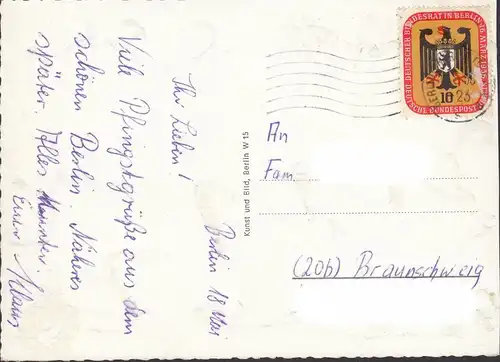 Berlin 18 Mai
Ihr Lieben!
Viele Pfingstgrüße aus dem
schönen Berlin. Näheres
später. Alles Munter.
Euer Klaus
Kunst und Bild, Berlin W 15
DEUTSCHER BUNDESRAT IN BERLIN · 16. MÄRZ 1956
DEUTSCHE BUNDESPOST
10
An
Fam
(20b) Braunschweig